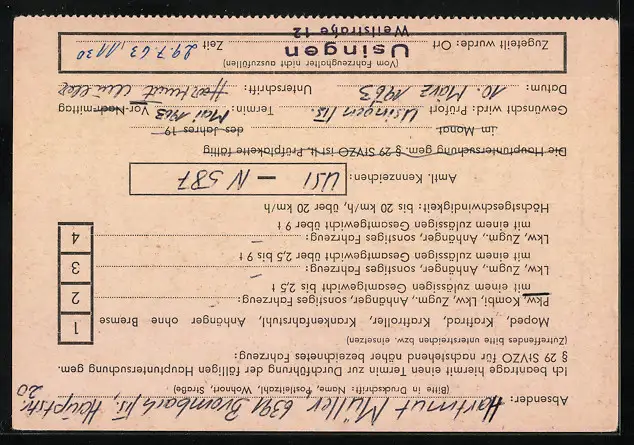 Absender: Hartmut Müller 6391 Brombach/Ts, Hauptstr. 20
(Bitte in Druckschrift: Name, Postleitzahl, Wohnort, Straße)
Ich beantrage hiermit einen Termin zur Durchführung der fälligen Hauptuntersuchung gem.
§ 29 StVZO für nachstehend näher bezeichnetes Fahrzeug:
(Zutreffendes bitte unterstreichen bzw. einsetzen)
Moped, Kraftrad, Kraftroller, Krankenfahrstuhl, Anhänger ohne Bremse 1
Pkw, Kombi, Lkw, Zugm., Anhänger, sonstiges Fahrzeug:
mit einem zulässigen Gesamtgewicht bis 2,5 t 2
Lkw, Zugm., Anhänger, sonstiges Fahrzeug: –
mit einem zulässigen Gesamtgewicht über 2,5 bis 9 t 3
Lkw, Zugm., Anhänger, sonstiges Fahrzeug: –
mit einem zulässigen Gesamtgewicht über 9 t 4
Höchstgeschwindigkeit: bis 20 km/h, über 20 km/h
Amtl. Kennzeichen: USI – N 587
Die Hauptuntersuchung gem. § 29 StVZO ist lt. Prüfplakette fällig
im Monat des Jahres 19
Gewünscht wird: Prüfort: Usingen/Ts. Termin: Mai 1963 Vor-Nachmittag
Datum: 10. März 1963 Unterschrift: Hartmut Müller
(Vom Fahrzeughalter nicht auszufüllen)
Zugeteilt wurde: Ort: Usingen Zeit 29.7.63, 1130
Weilstraße 12